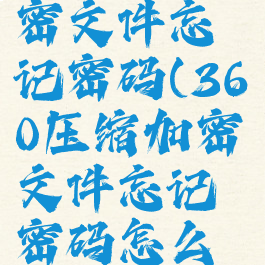 密文件忘
记密码(36
0压缩加密
文件忘记
密码怎么